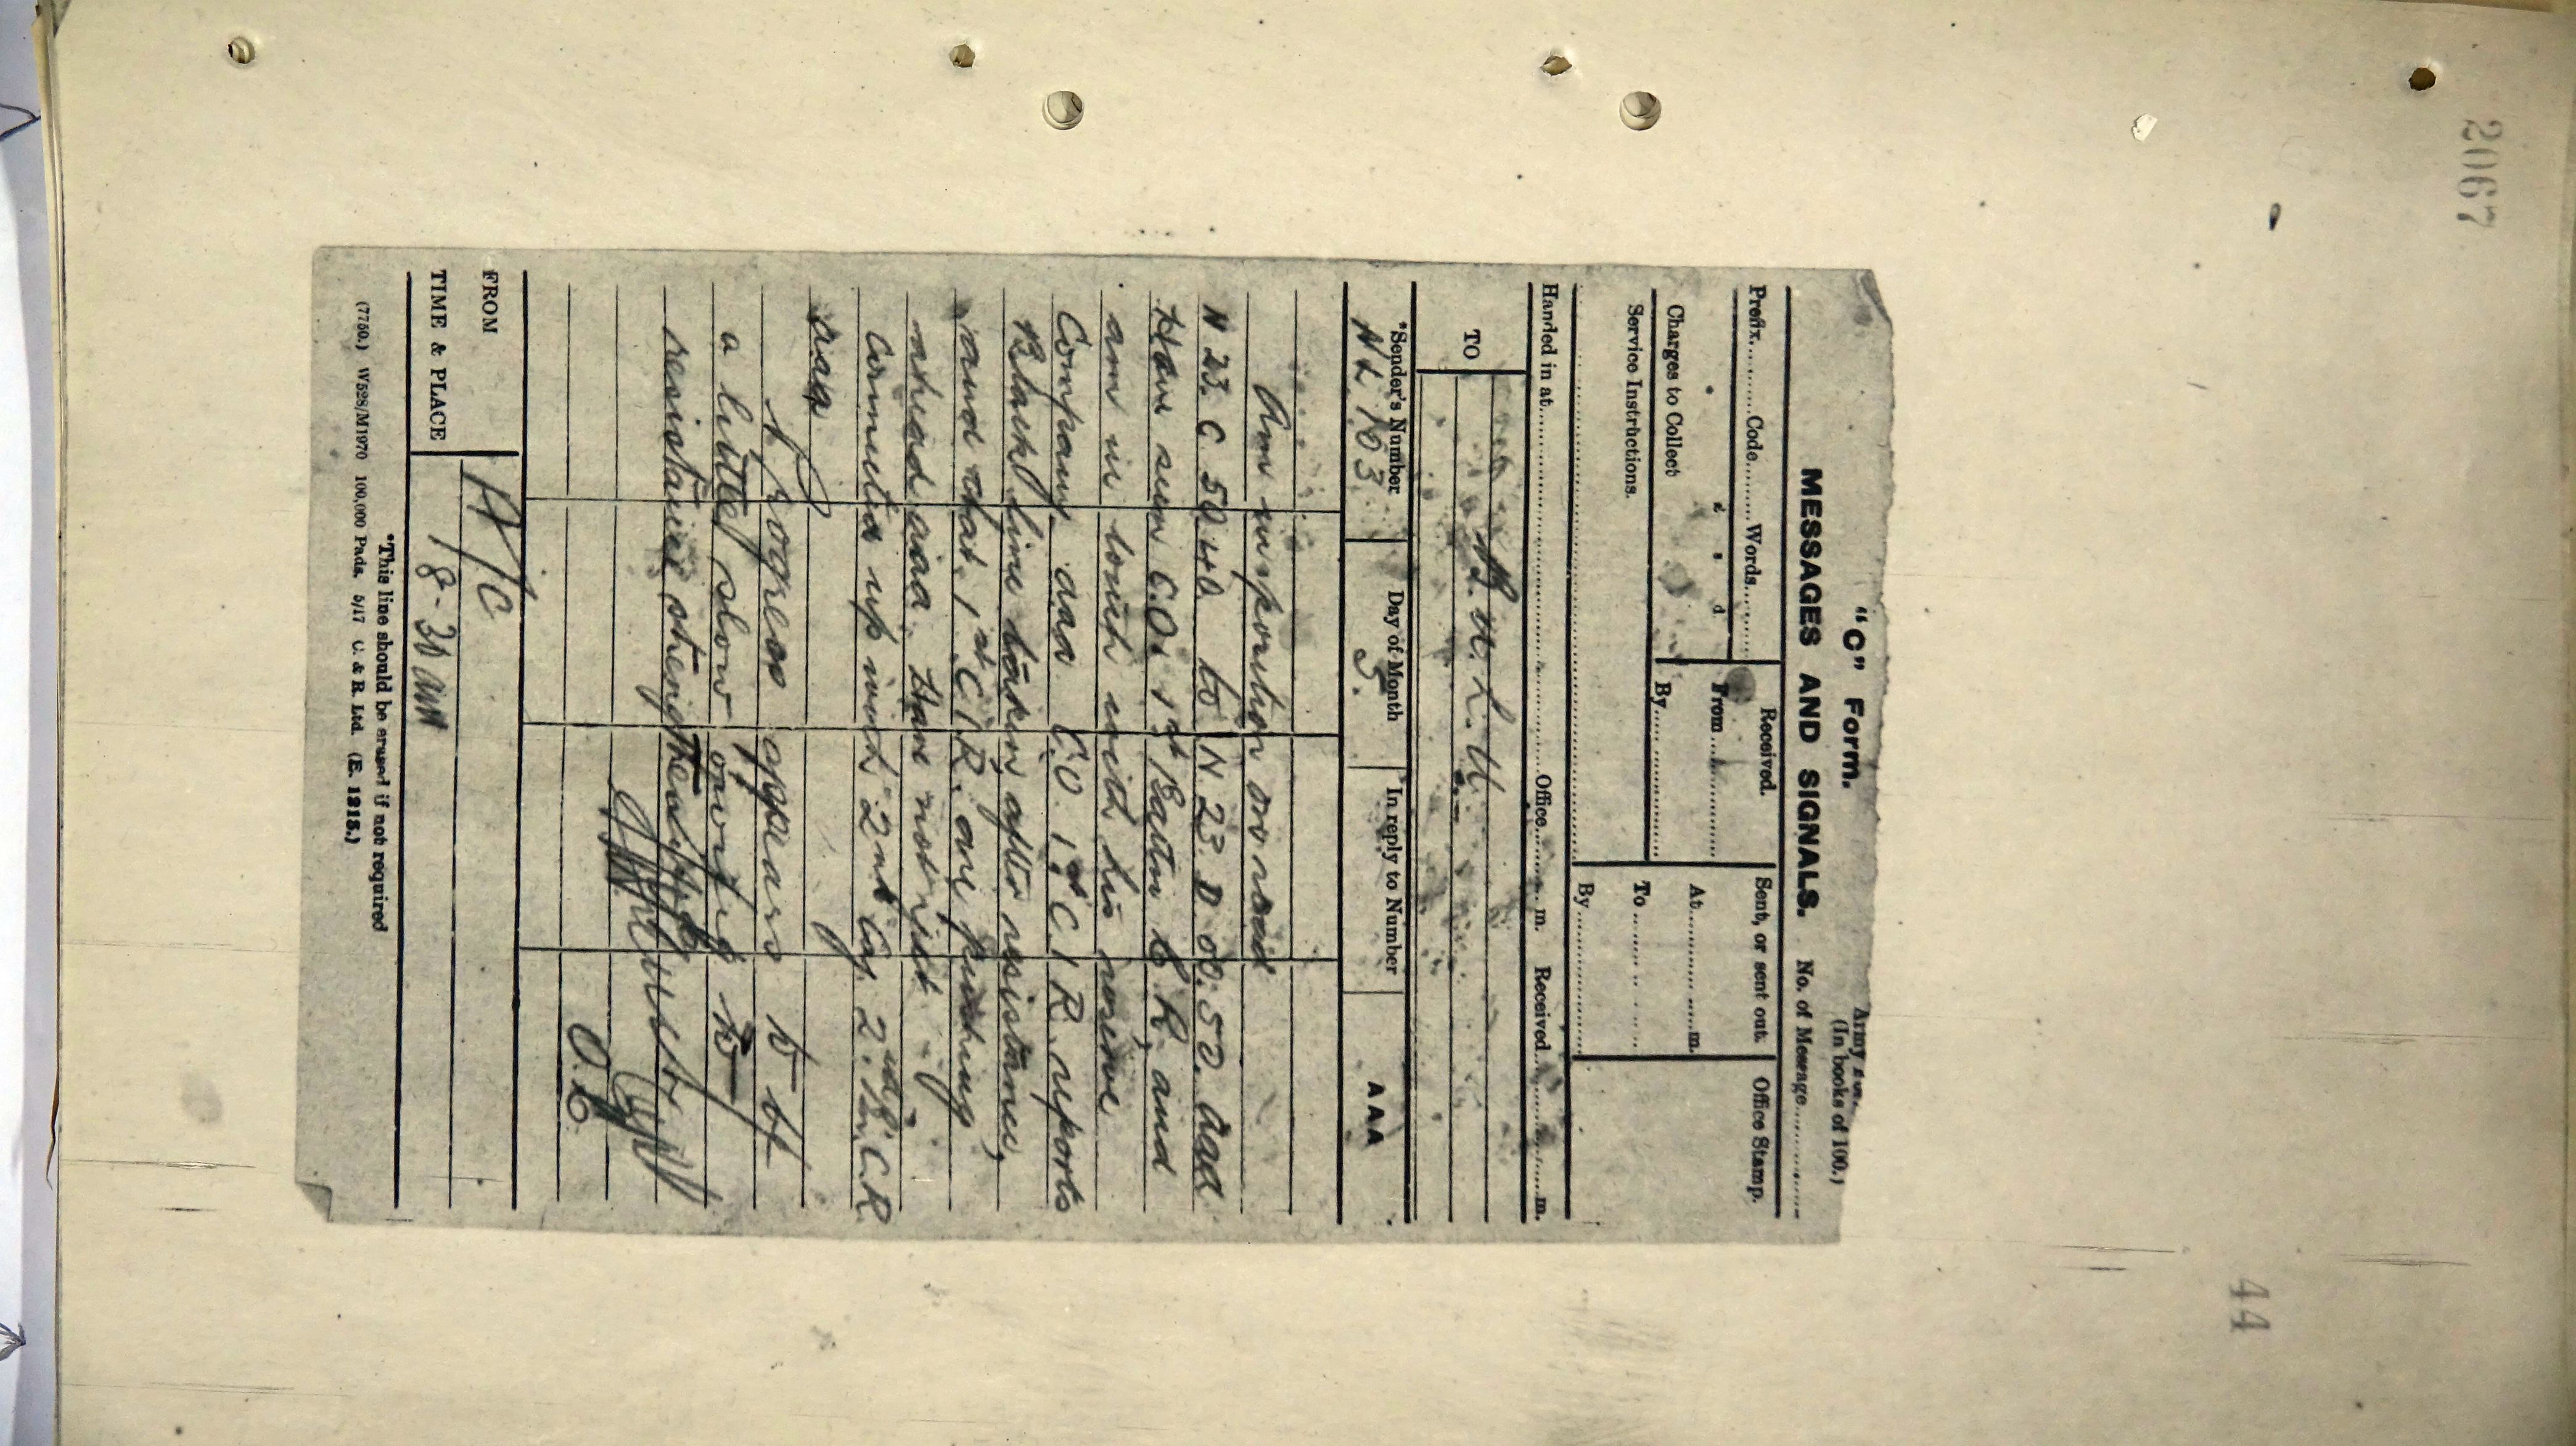 2067
44
"C" Form.
Army
(In books of 100.)
MESSAGES AND SIGNALS. No. of Message
Prefix Code Words
Received.
Sent, or sent out.
Office Stamp.
Charges to Collect
From
At m.
Service Instructions.
By
To
By
Handed in at Office m. Received m.
TO
N. L. H.
*Sender's Number Day of Month In reply to Number AAA
NL 103 5.
Am in position on road
N 23. C 50 40 to N 23 D 00.50. aaa
Have seen C.O. 1st Battn C R, and
am in touch with his reserve
Company aaa C.O 1st C I R reports
Black line taken after resistance,
and that 1st C I R. are pushing
ahead aaa. Have not yet
connected up with 2nd Coy. 2nd Bn. C.R
aaa
Progress appears to be
a little slow owing to
resistance
O.C
FROM A/C
TIME & PLACE 8-30 am
*This line should be erased if not required
(7750.) W528/M1970 100,000 Pads. 5/17 C. & R. Ltd. (E. 1213.)